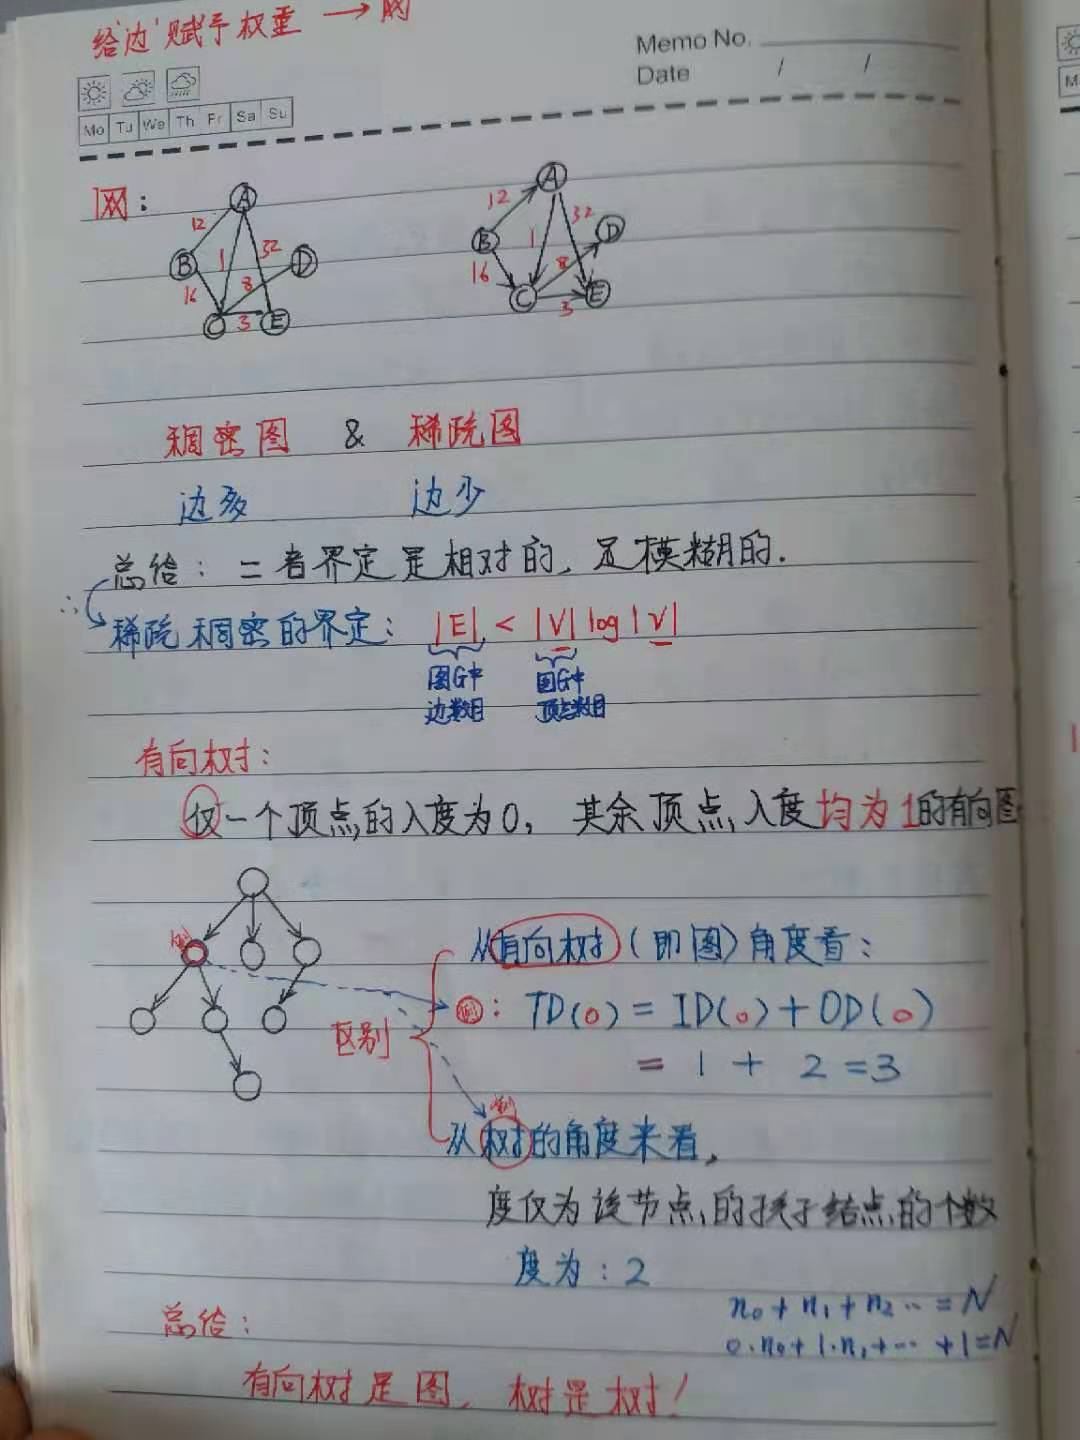 给'边'赋予权重 → 网
Memo No.
Date / /
Mo Tu We Th Fr Sa Su
网：
A
12
B
1
32
D
16
8
C
3
E
A
12
B
1
32
D
16
8
C
3
E
稠密图 & 稀疏图
边多 边少
总结：二者界定是相对的，是模糊的.
∴ 稀疏稠密的界定： |E| < |V| log |V|
图G中 图G中
边数目 顶点数目
有向树：
仅一个顶点的入度为0， 其余顶点入度均为1的有向图
例
从有向树（即图）角度看：
区别
例： TD(o) = ID(o) + OD(o)
= 1 + 2 = 3
例
从树的角度来看，
度仅为该节点的孩子结点的个数
度为：2
n₀ + n₁ + n₂ ·· = N
0·n₀ + 1·n₁ + ··· + 1 = N
总结：
有向树是图，树是树！